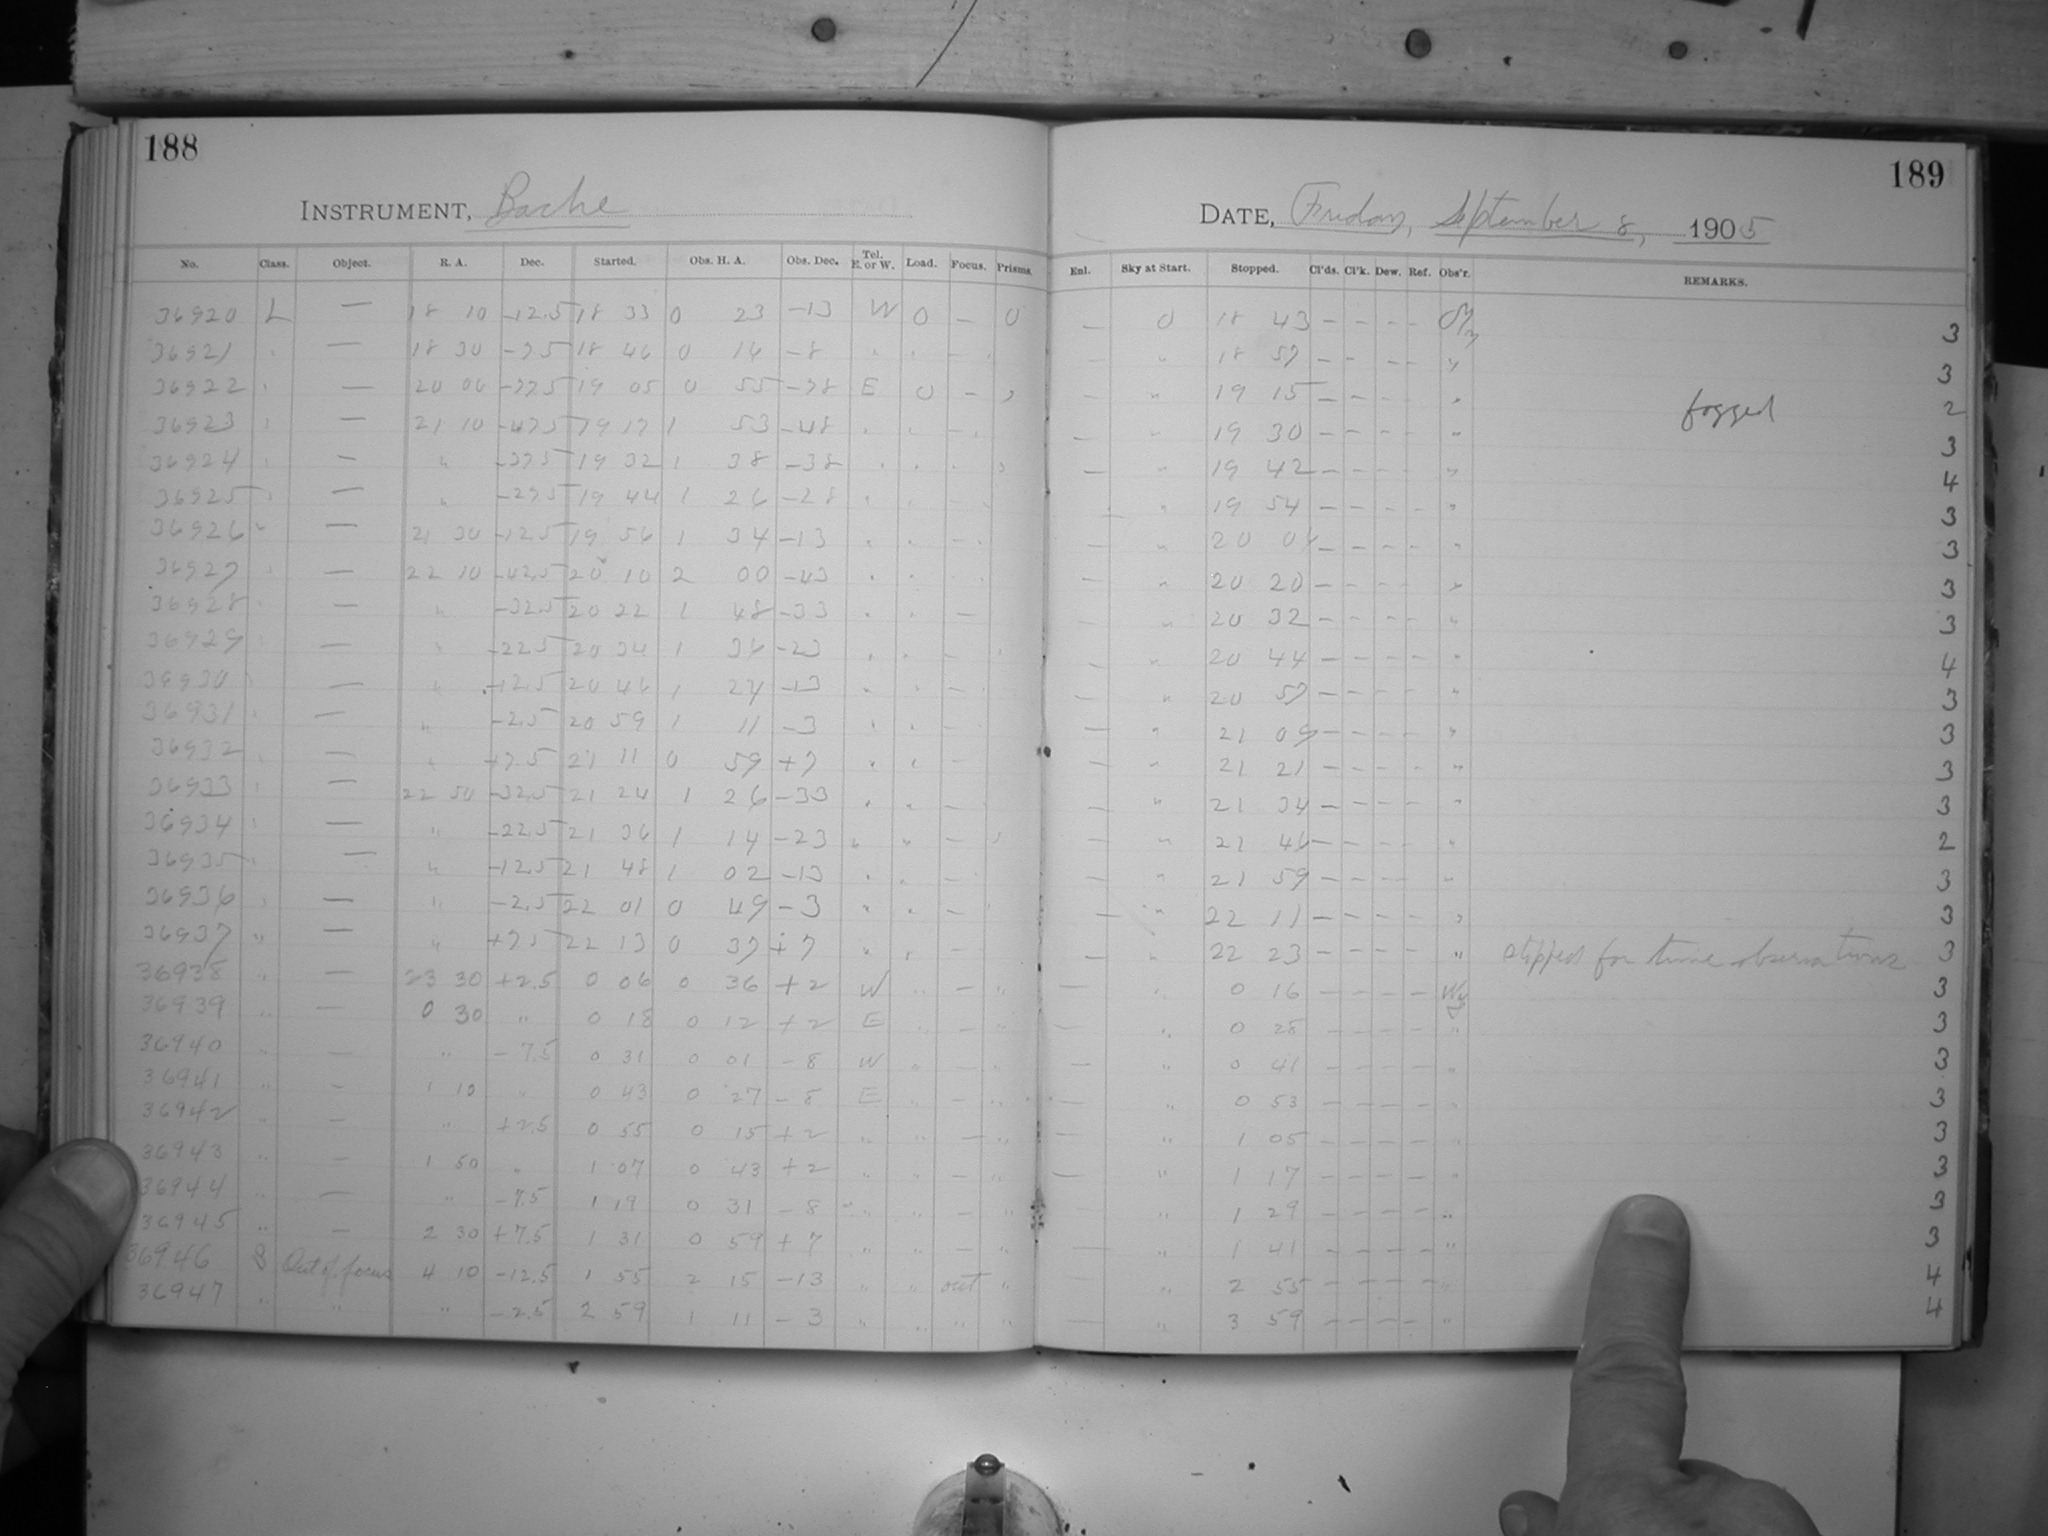 188
INSTRUMENT, Bache
No. Class. Object. R. A. Dec. Started. Obs. H. A. Obs. Dec. Tel. E. or W. Load. Focus. Prisms.
36920 L — 18 10 -12.5 18 33 0 23 -13 W 0 — 0
36921 " — 18 30 -7.5 18 46 0 16 -8 " "
36922 " — 20 00 -37.5 19 05 0 55 -38 E 0 — "
36923 " — 21 10 -47.5 19 17 1 53 -48 " " — "
36924 " — " -37.5 19 32 1 38 -38 " " " "
36925 " — " -27.5 19 44 1 26 -28 "
36926 " — 21 30 -12.5 19 56 1 34 -13 " " — "
36927 " — 22 10 -42.5 20 10 2 00 -43 " "
36928 " — " -32.5 20 22 1 48 -33 " " —
36929 " — " -22.5 20 34 1 36 -23 " " — "
36930 " — " -12.5 20 46 1 24 -13 " " — "
36931 " — " -2.5 20 59 1 11 -3 " " —
36932 " — " +7.5 21 11 0 59 +7 " " —
36933 " — 22 50 -32.5 21 24 1 26 -33 " " —
36934 " — " -22.5 21 36 1 14 -23 " " — "
36935 " — " -12.5 21 48 1 02 -13 " " —
36936 " — " -2.5 22 01 0 49 -3 " " — "
36937 " — " +7.5 22 13 0 37 +7 " " —
36938 " — 23 30 +2.5 0 06 0 36 +2 W " — "
36939 " — 0 30 " 0 18 0 12 +2 E " — "
36940 " — " -7.5 0 31 0 01 -8 W " — "
36941 " — 1 10 " 0 43 0 27 -8 E " — "
36942 " — " +2.5 0 55 0 15 +2 " " — "
36943 " — 1 50 " 1 07 0 43 +2 " " — "
36944 " — " -7.5 1 19 0 31 -8 " " — "
36945 " — 2 30 +7.5 1 31 0 59 +7 " " — "
36946 S Out of focus 4 10 -12.5 1 55 2 15 -13 " " out "
36947 " " " -2.5 2 59 1 11 -3 " " " "
189
DATE, Friday, September 8, 1905
Enl. Sky at Start. Stopped. Cl'ds. Cl'k. Dew. Ref. Obs'r. REMARKS.
— 0 18 43 — — — — 3
— " 18 57 — — — — " 3
— " 19 15 — — — — " fogged 2
— " 19 30 — — — — " 3
— " 19 42 — — — — " 4
" 19 54 — — — — " 3
— " 20 06 — — — — " 3
— " 20 20 — — — — " 3
— " 20 32 — — — — " 3
— " 20 44 — — — — " 4
— " 20 57 — — — — " 3
— " 21 09 — — — — " 3
— " 21 21 — — — — " 3
— " 21 34 — — — — " 3
— " 21 46 — — — — " 2
— " 21 59 — — — — " 3
— " 22 11 — — — — " 3
— " 22 23 — — — — " stopped for time observations 3
— " 0 16 — — — — 3
— " 0 28 — — — — " 3
— " 0 41 — — — — " 3
— " 0 53 — — — — " 3
— " 1 05 — — — — " 3
— " 1 17 — — — — " 3
" 1 29 — — — — " 3
— " 1 41 — — — — " 3
" 2 55 — — — — " 4
— " 3 59 — — — — " 4